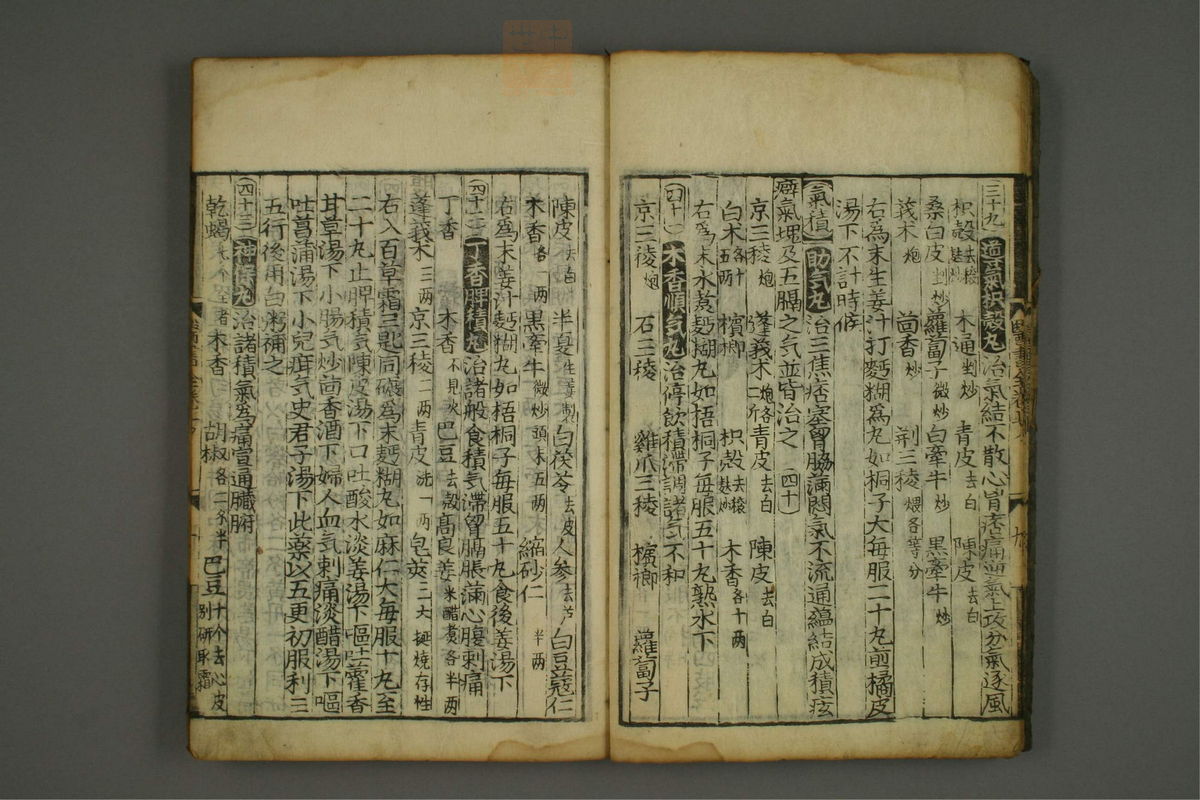 三十九 適氣枳殼丸 治氣結不散心胷痞痛逆氣上攻分氣逐風
枳殼 去穣麸炒 木通 剉炒 青皮 去白 陳皮 去白
桑白皮 剉炒 蘿蔔子 微炒 白牽牛 炒 黒牽牛 炒
莪术 炮 茴香 炒 荆三稜 煨各等分
右為末生姜汁打麪糊為丸如桐子大每服二十丸煎橘皮
湯下不計時候
氣積 助气丸 治三焦痞塞胷脇滿悶氣不流通蘊結成積痃
癖氣塊及五膈之气並皆治之 四十
京三稜 炮 蓬莪术 炮各二斤 青皮 去白 陳皮 去白
白术 各十五两 檳榔 枳殼 去穣麸炒 木香 各十两
右為末水煑麪糊丸如梧桐子每服五十丸熟水下
四十一 木香順气丸 治停飲積滯調諸气不和
京三稜 炮 石三稜 雞爪三稜 檳榔 蘿蔔子
陳皮 去白 半夏 生姜製 白茯苓 去皮 人參 去芦 白豆蔻仁
木香 各一两 黒牽牛 微炒頭末五两 縮砂仁 半两
右為末姜汁麪糊丸如梧桐子每服五十丸食後姜湯下
四十二 丁香脾積丸 治諸般食積气滯胷膈脹滿心腹刺痛
丁香 木香 不見火 巴豆 去殼 髙良姜 米醋煑各半两
蓬莪术 三两 京三稜 二两 青皮 洗一两 皂莢 三大挺燒存性
右入百草霜三匙同碾為末麪糊丸如麻仁大每服十丸至
二十丸止脾積气陳皮湯下口吐酸水淡姜湯下嘔吐藿香
甘草湯下小腸气炒茴香酒下婦人血气刺痛淡醋湯下嘔
吐菖蒲湯下小兒疳气史君子湯下此藥以五更初服利三
五行後用白粥補之
四十三 神保丸 治諸積氣為痛宣通臟腑
乾蝎 木香 胡椒 各二多半 巴豆 十个去心皮別研取霜